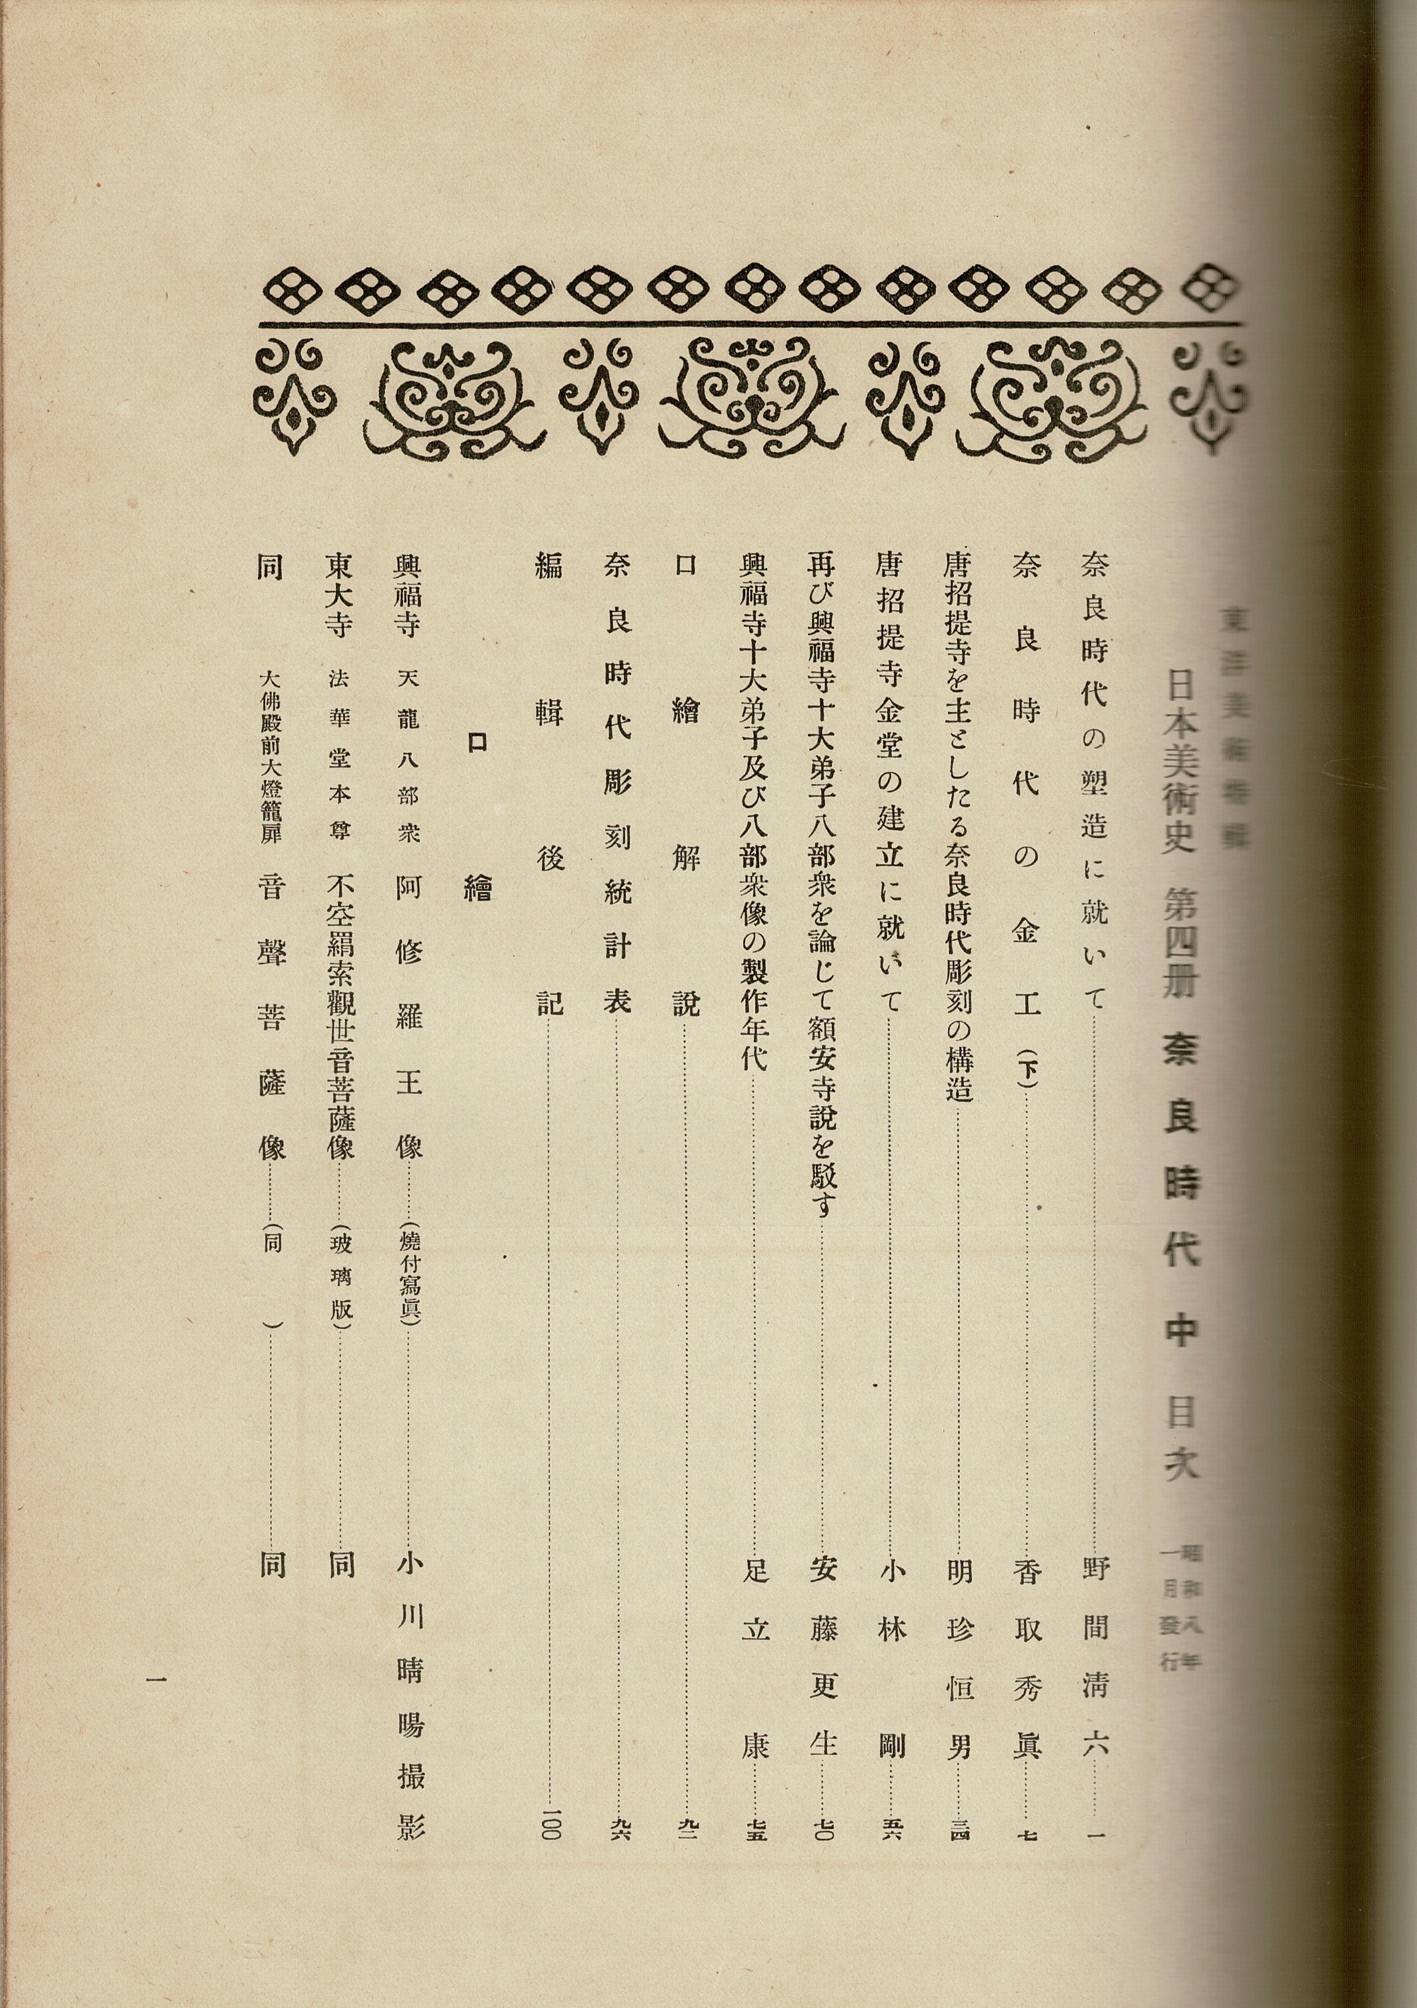 東洋美術特輯
日本美術史 第四册 奈良時代 中 目次 昭和八年一月發行
奈良時代の塑造に就いて 野間淸六 一
奈良時代の金工(下) 香取秀眞 七
唐招提寺を主としたる奈良時代彫刻の構造 明珍恒男 三四
唐招提寺金堂の建立に就いて 小林剛 五六
再び興福寺十大弟子八部衆を論じて額安寺說を駁す 安藤更生 七〇
興福寺十大弟子及び八部衆像の製作年代 足立康 七五
口繪解說 九二
奈良時代彫刻統計表 九六
編輯後記 一〇〇
口繪
興福寺 天龍八部衆 阿修羅王像 (燒付寫眞) 小川晴暘撮影
東大寺 法華堂本尊 不空羂索觀世音菩薩像 (玻璃版) 同
同 大佛殿前大燈籠扉 音聲菩薩像 (同) 同
一